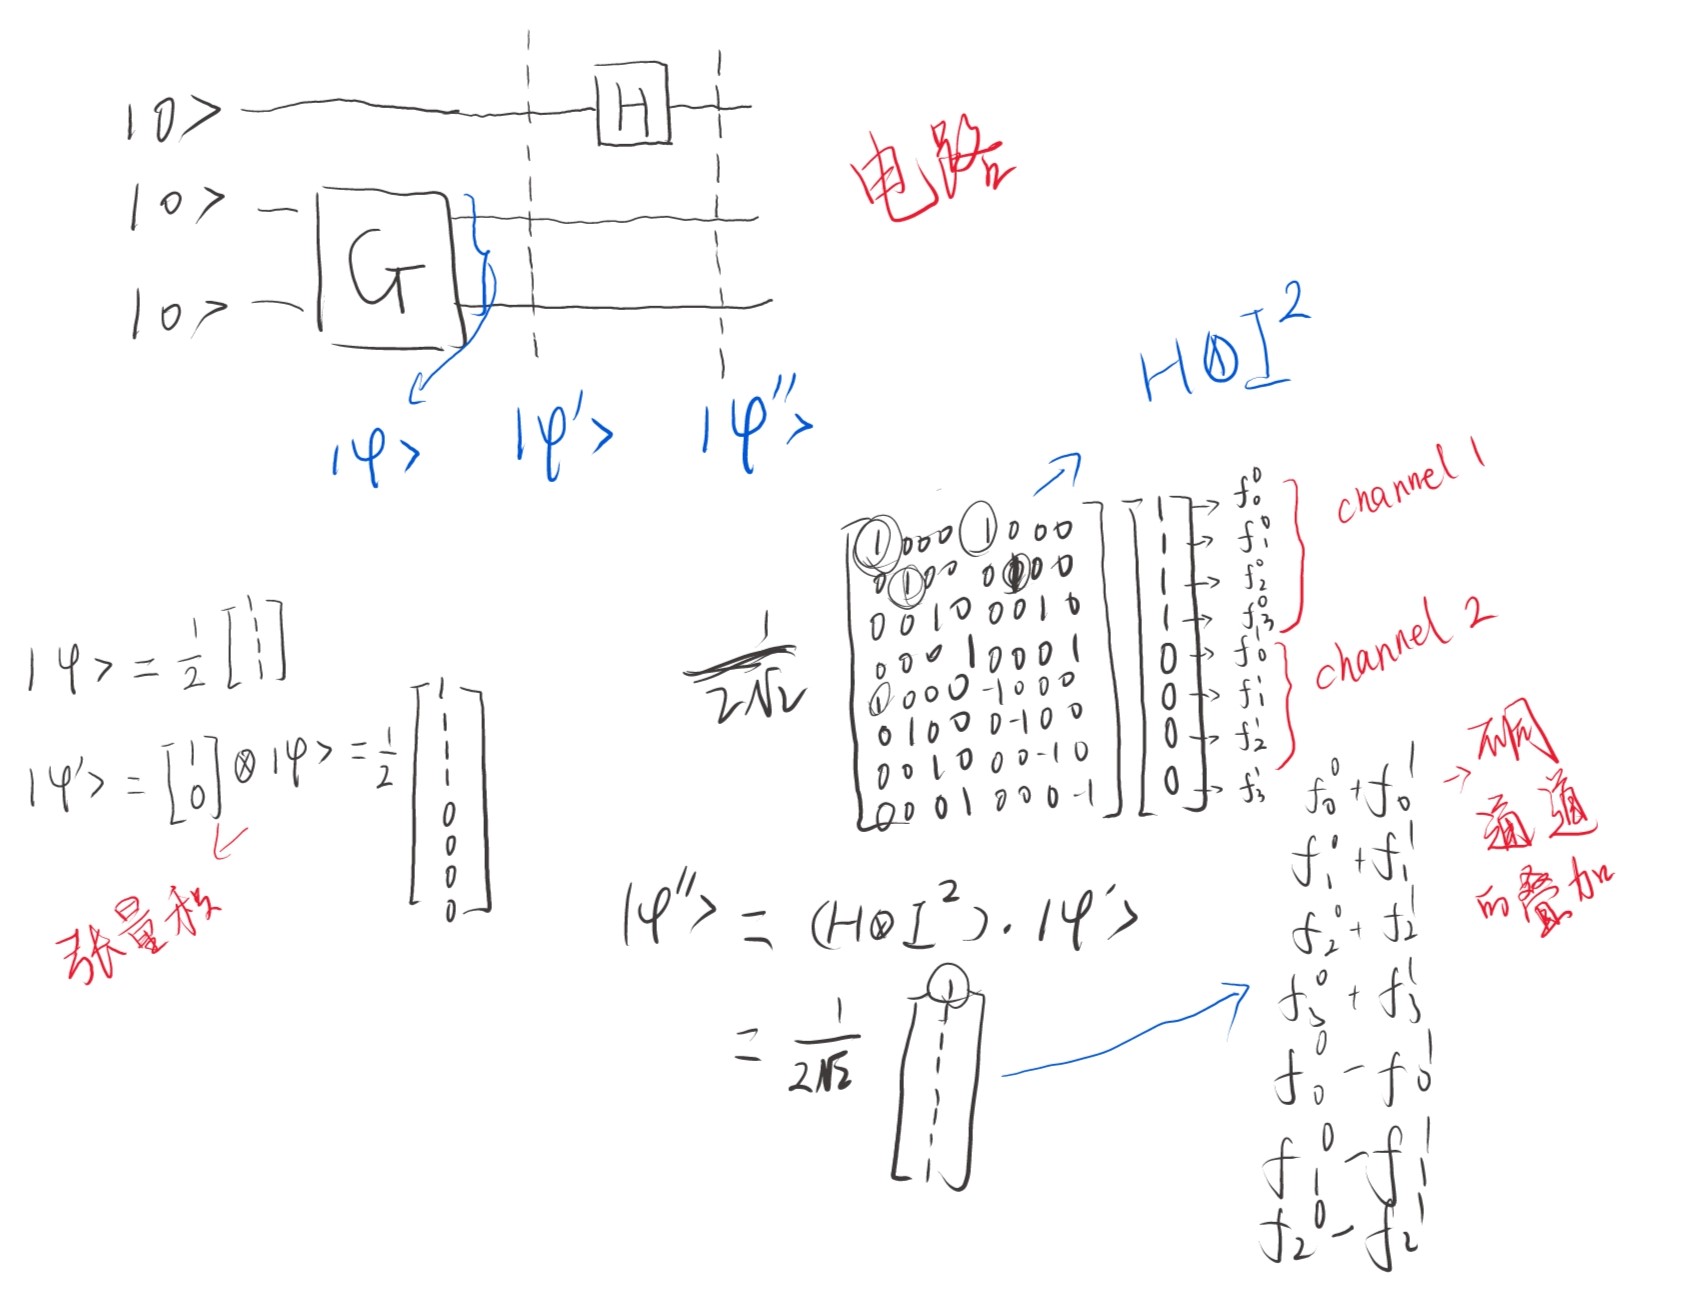 |0> H
电路
|0>
G
|0>
|φ> |φ'> |φ''>
H⊗I²
|φ> = 1/2 [1 1 1 1]
|φ'> = [1 0] ⊗ |φ> = 1/2 [1 1 1 1 0 0 0 0]
张量积
1/2√2
1 0 0 0 1 0 0 0
0 1 0 0 0 1 0 0
0 0 1 0 0 0 1 0
0 0 0 1 0 0 0 1
1 0 0 0 -1 0 0 0
0 1 0 0 0 -1 0 0
0 0 1 0 0 0 -1 0
0 0 0 1 0 0 0 -1
1 → f₀⁰
1 → f₁⁰
1 → f₂⁰
1 → f₃⁰
0 → f₀¹
0 → f₁¹
0 → f₂¹
0 → f₃¹
channel 1
channel 2
|φ''> = (H⊗I²)·|φ'>
= 1/2√2 [1 1]
f₀⁰ + f₀¹
f₁⁰ + f₁¹
f₂⁰ + f₂¹
f₃⁰ + f₃¹
f₀⁰ - f₀¹
f₁⁰ - f₁¹
f₂⁰ - f₂¹
→ 不同
通道
的叠加